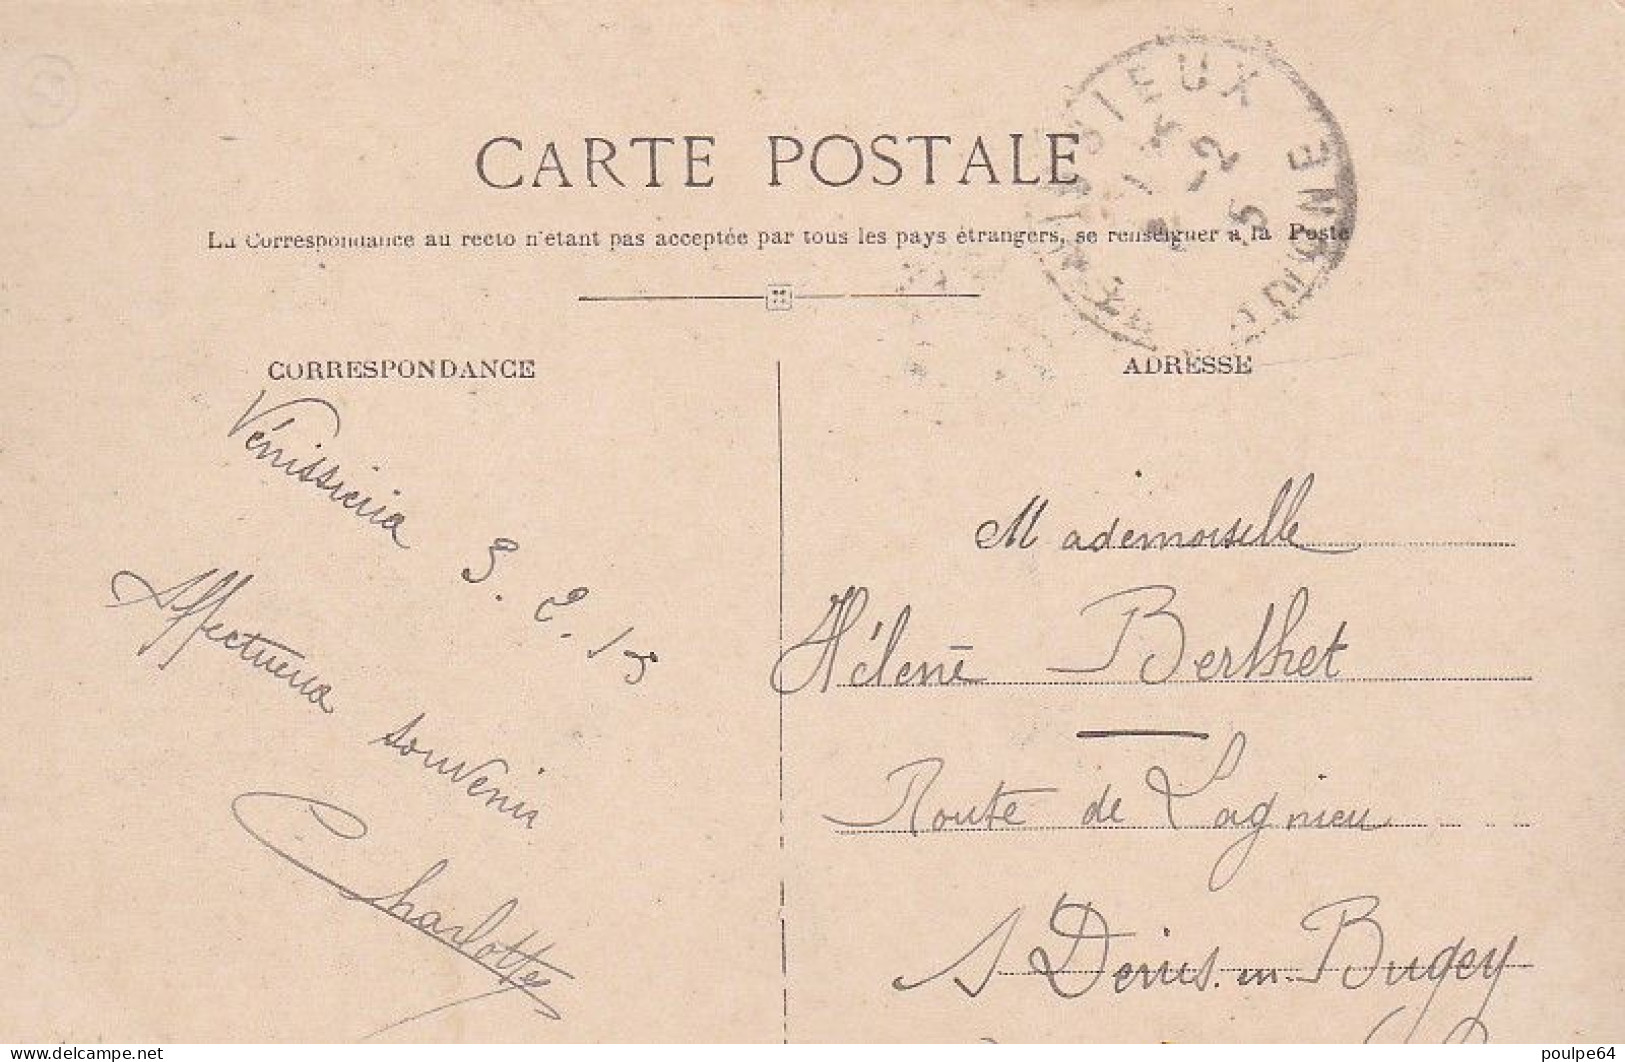 CARTE POSTALE
La Correspondance au recto n'étant pas acceptée par tous les pays étrangers, se renseigner à la Poste
CORRESPONDANCE
Vénissieux 3. 2. 15
Affectueux souvenir
Charlotte
ADRESSE
Mademoiselle
Hélène Berthet
Route de Lagnieu
St Denis-en-Bugey
-2
15
delcampe.net
poulpe64